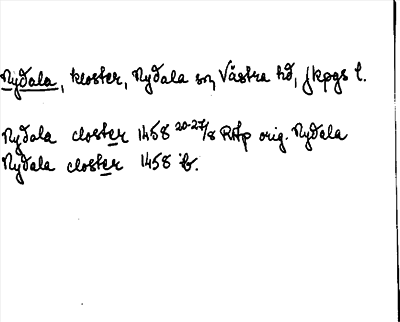 Nydala, kloster, Nydala sn, Västra hd, Jkpgs l.
Nydala closter 1458 20-27/8 RAp orig. Nydala
Nydala closter 1458 ib.